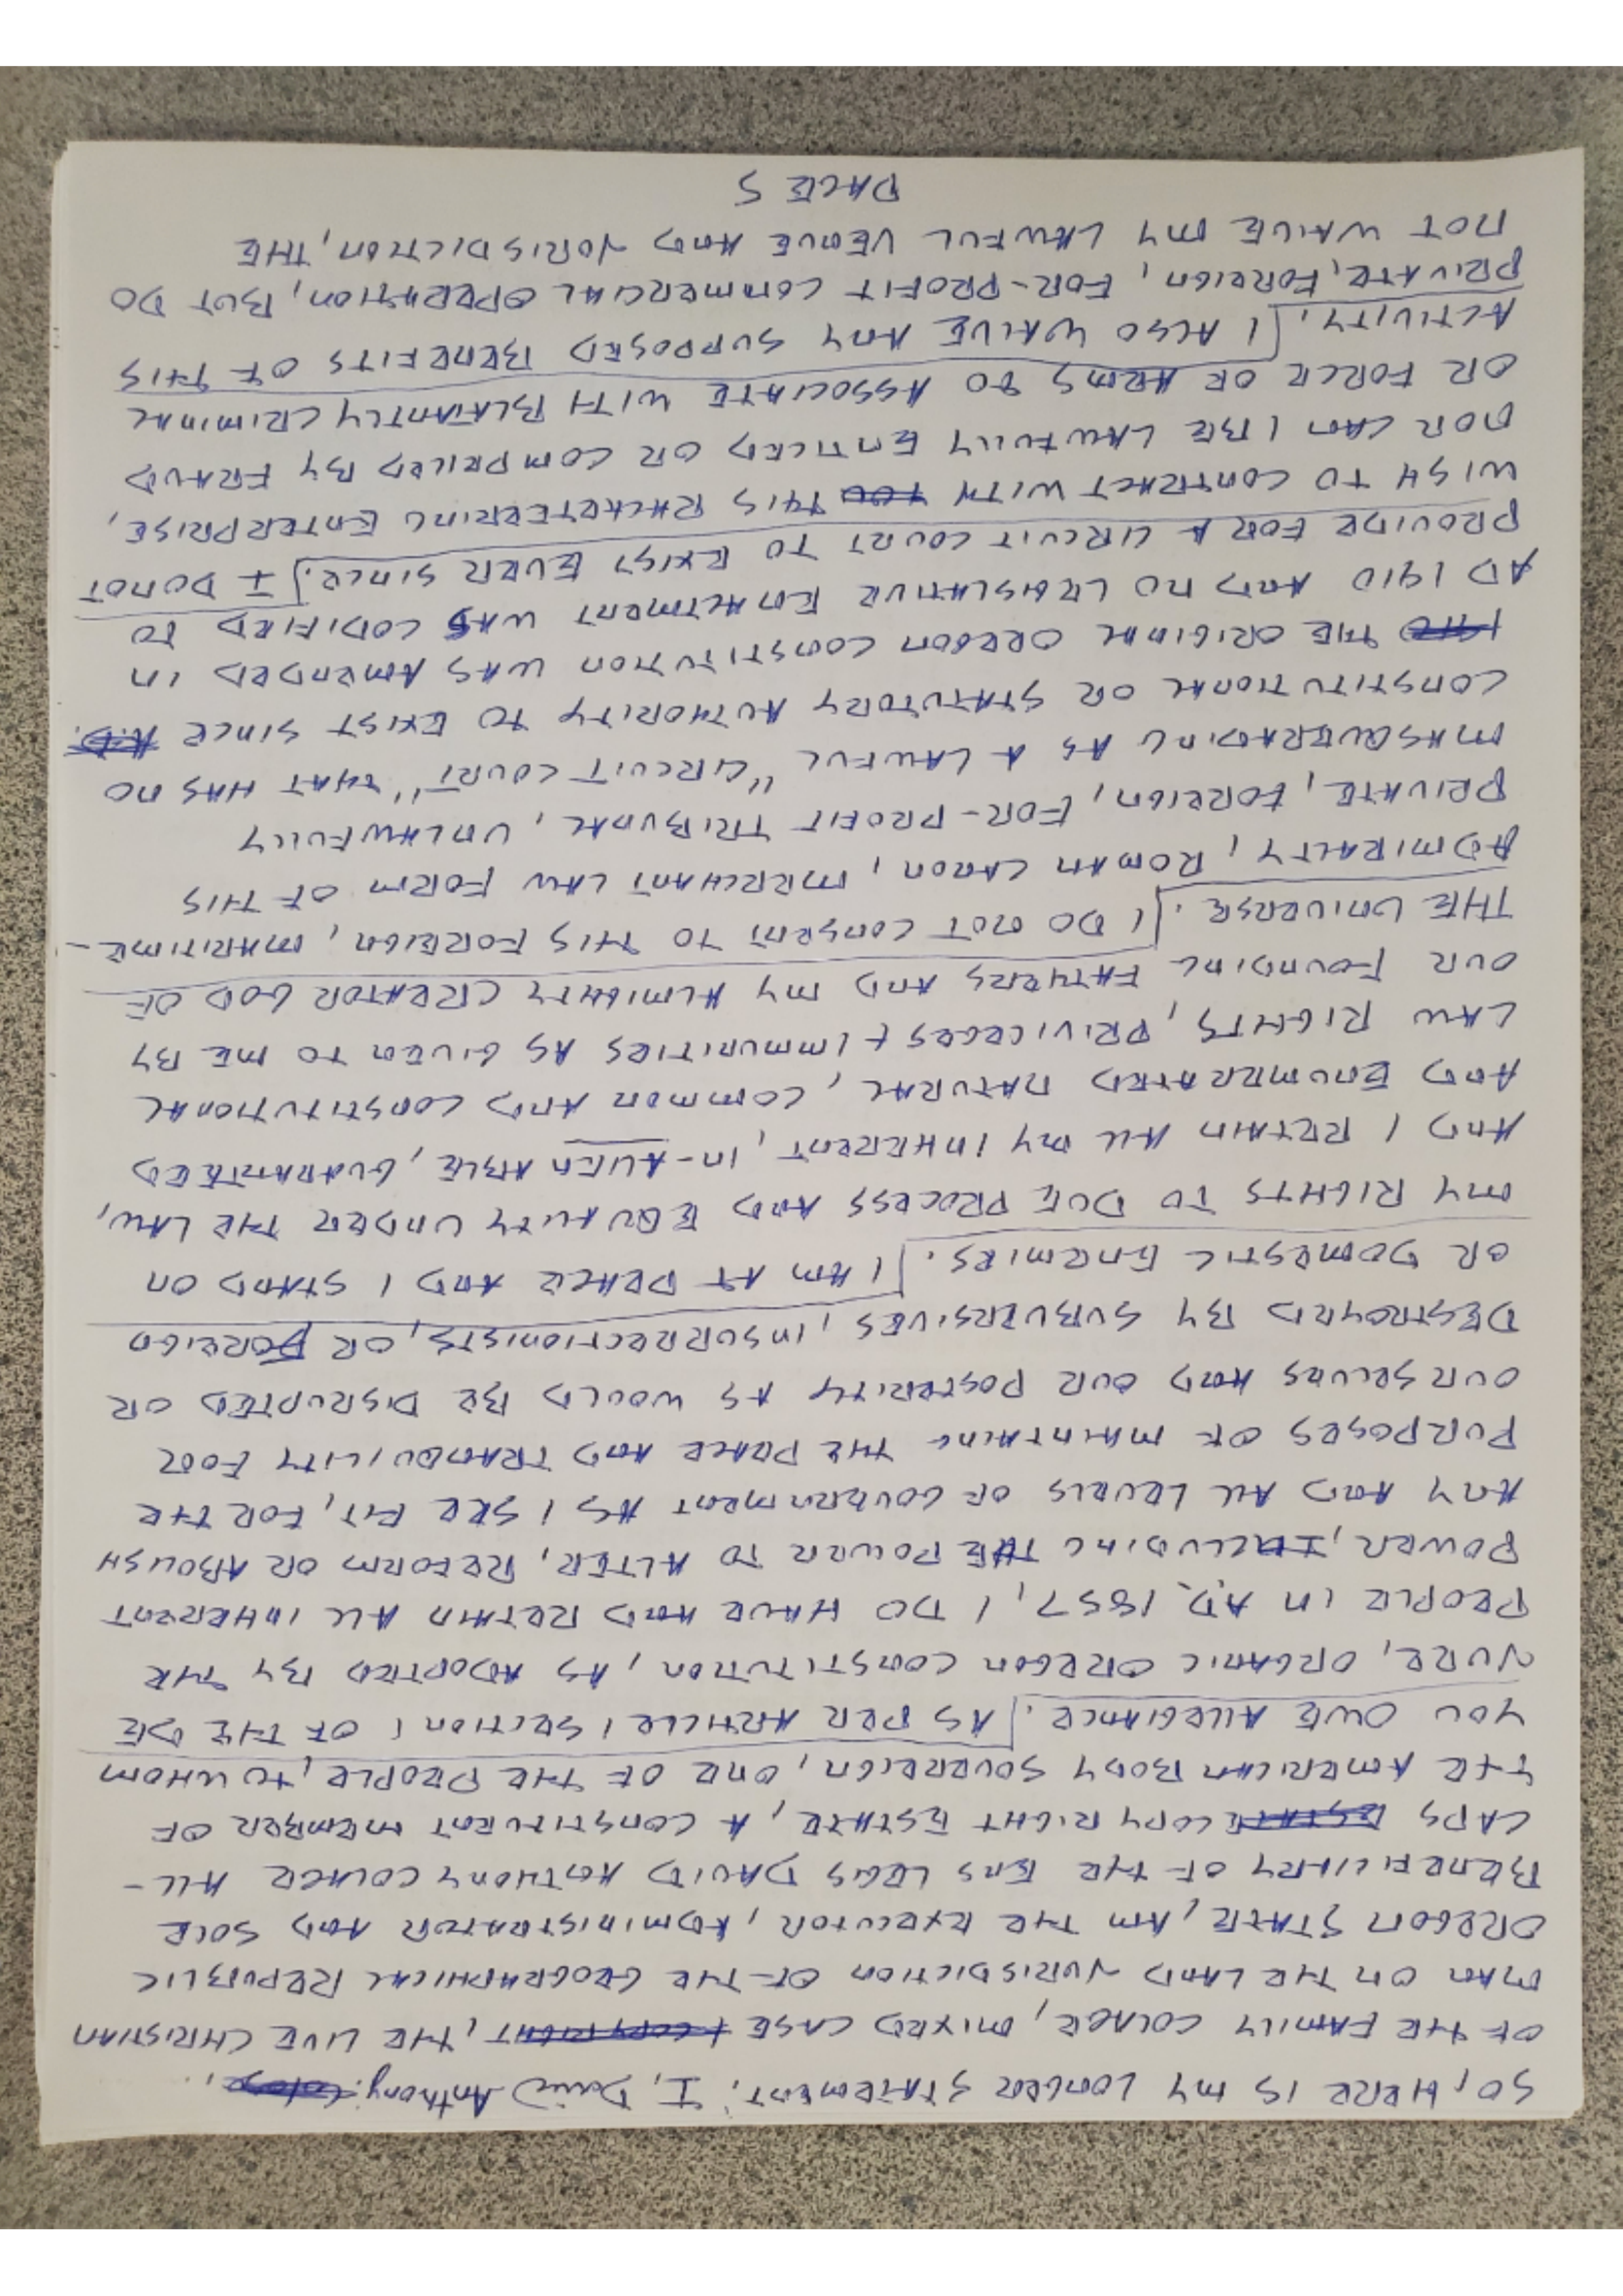 SO, HERE IS MY LONGER STATEMENT: I, David Anthony:
OF THE FAMILY COLACE, MIXED CASE + COPYRIGHT, THE LIVE CHRISTIAN
MAN ON THE LAND JURISDICTION OF THE GEOGRAPHICAL REPUBLIC
OREGON STATE, AM THE EXECUTOR, ADMINISTRATOR AND SOLE
BENEFICIARY OF THE ENS LEGIS DAVID ANTHONY COLACE ALL-
CAPS ESTATE COPYRIGHT ESTATE, A CONSTITUENT MEMBER OF
THE AMERICAN BODY SOVEREIGN, ONE OF THE PEOPLE, TO WHOM
YOU OWE ALLEGIANCE. AS PER ARTICLE I SECTION I OF THE DE
JURE, ORGANIC OREGON CONSTITUTION, AS ADOPTED BY THE
PEOPLE IN A.D. 1857, I DO HAVE AND RETAIN ALL INHERENT
POWER, INCLUDING THE POWER TO ALTER, REFORM OR ABOLISH
ANY AND ALL LEVELS OF GOVERNMENT AS I SEE FIT, FOR THE
PURPOSES OF MAINTAING THE PEACE AND TRANQUILITY FOR
OURSELVES AND OUR POSTERITY AS WOULD BE DISRUPTED OR
DESTROYED BY SUBVERSIVES, INSURRECTIONISTS, OR FOREIGN
OR DOMESTIC ENEMIES. I AM AT PEACE AND I STAND ON
MY RIGHTS TO DUE PROCESS AND EQUALITY UNDER THE LAW,
AND I RETAIN ALL MY INHERENT, IN-ALIENABLE, GUARANTEED
AND ENUMERATED NATURAL, COMMON AND CONSTITUTIONAL
LAW RIGHTS, PRIVILEGES & IMMUNITIES AS GIVEN TO ME BY
OUR FOUNDING FATHERS AND MY ALMIGHTY CREATOR GOD OF
THE UNIVERSE. I DO NOT CONSENT TO THIS FOREIGN, MARITIME-
ADMIRALTY, ROMAN CANON, MERCHANT LAW FORM OF THIS
PRIVATE, FOREIGN, FOR-PROFIT TRIBUNAL, UNLAWFULLY
MASQUERADING AS A LAWFUL "CIRCUIT COURT", THAT HAS NO
CONSTITUTIONAL OR STATUTORY AUTHORITY TO EXIST SINCE A.D.
THE ORIGINAL OREGON CONSTITUTION WAS AMENDED IN
AD 1910 AND NO LEGISLATIVE ENACTMENT WAS CODIFIED TO
PROVIDE FOR A CIRCUIT COURT TO EXIST EVER SINCE. I DO NOT
WISH TO CONTRACT WITH YOU THIS RACKETEERING ENTERPRISE,
NOR CAN I BE LAWFULLY ENTICED OR COMPELLED BY FRAUD
OR FORCE OF ARMS TO ASSOCIATE WITH BLATANTLY CRIMINAL
ACTIVITY. I ALSO WAIVE ANY SUPPOSED BENEFITS OF THIS
PRIVATE, FOREIGN, FOR-PROFIT COMMERCIAL OPERATION, BUT DO
NOT WAIVE MY LAWFUL VENUE AND JURISDICTION, THE
PAGE 5